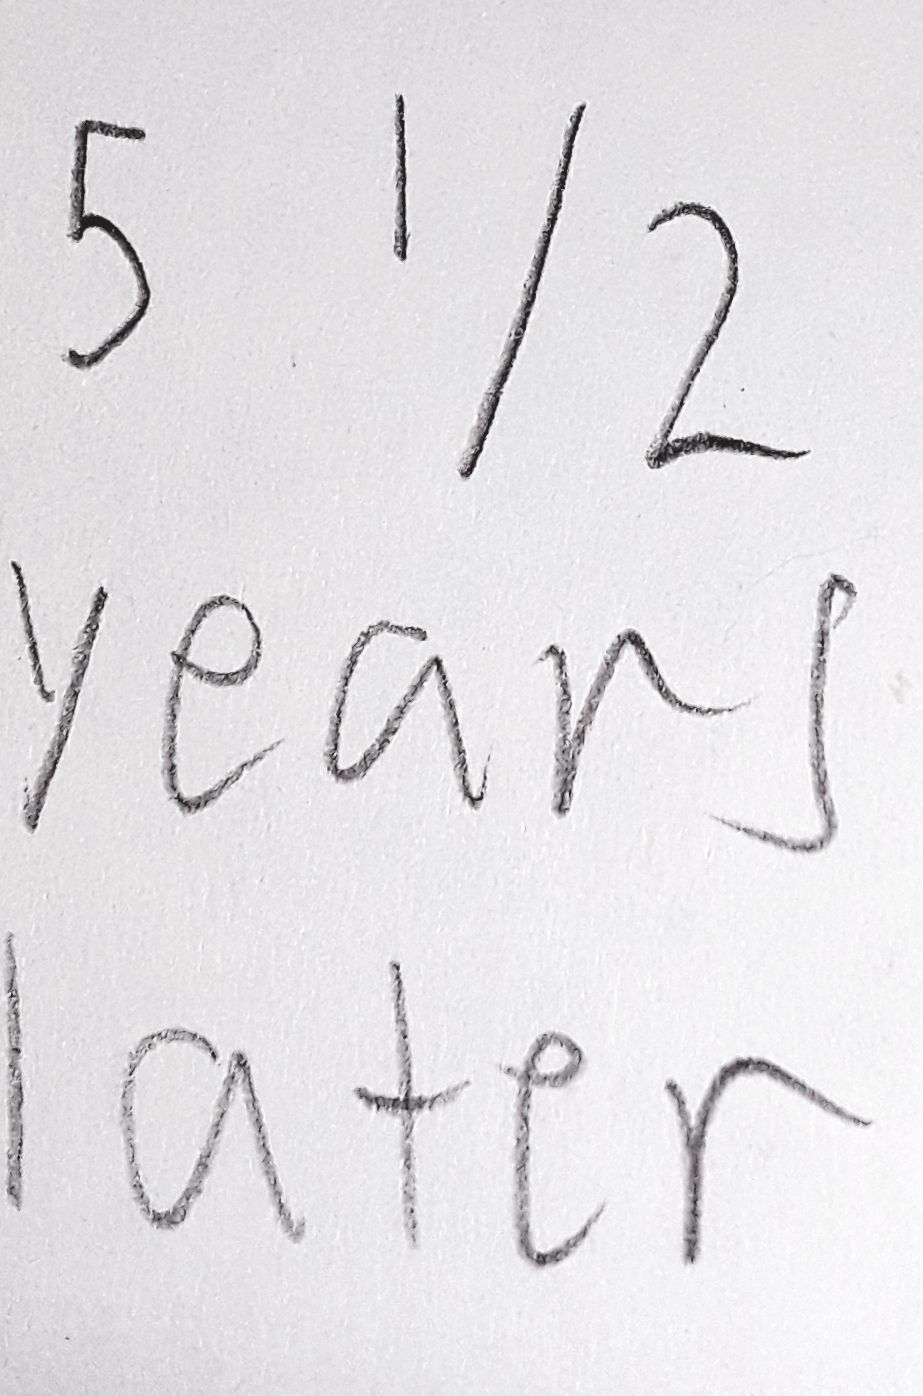 5 1/2
years
later